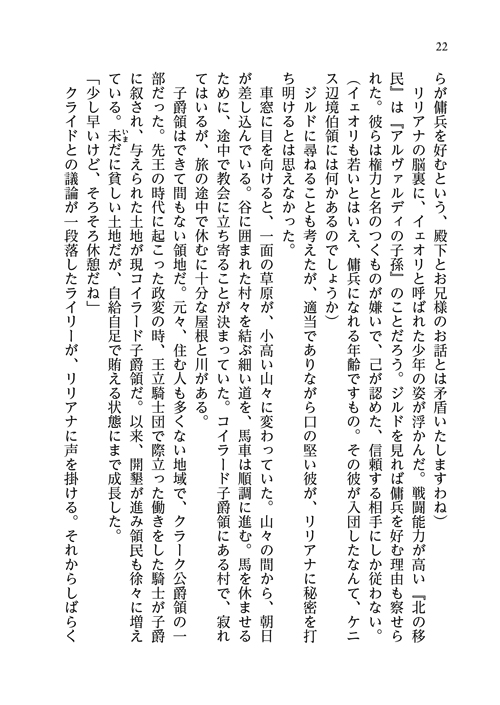 22
らが傭兵を好むという、殿下とお兄様のお話とは矛盾いたしますわね）
　リリアナの脳裏に、イェオリと呼ばれた少年の姿が浮かんだ。戦闘能力が高い『北の移
民』は『アルヴァルディの子孫』のことだろう。ジルドを見れば傭兵を好む理由も察せら
れた。彼らは権力と名のつくものが嫌いで、己が認めた、信頼する相手にしか従わない。
（イェオリも若いとはいえ、傭兵になれる年齢ですもの。その彼が入団したなんて、ケニ
ス辺境伯領には何かあるのでしょうか）
　ジルドに尋ねることも考えたが、適当でありながら口の堅い彼が、リリアナに秘密を打
ち明けるとは思えなかった。
　車窓に目を向けると、一面の草原が、小高い山々に変わっていた。山々の間から、朝日
が差し込んでいる。谷に囲まれた村々を結ぶ細い道を、馬車は順調に進む。馬を休ませる
ために、途中で教会に立ち寄ることが決まっていた。コイラード子爵領にある村で、寂れ
てはいるが、旅の途中で休むに十分な屋根と川がある。
　子爵領はできて間もない領地だ。元々、住む人も多くない地域で、クラーク公爵領の一
部だった。先王の時代に起こった政変の時、王立騎士団で際立った働きをした騎士が子爵
に叙され、与えられた土地が現コイラード子爵領だ。以来、開墾が進み領民も徐々に増え
ている。未だに貧しい土地だが、自給自足で賄える状態にまで成長した。
いま
「少し早いけど、そろそろ休憩だね」
　クライドとの議論が一段落したライリーが、リリアナに声を掛ける。それからしばらく